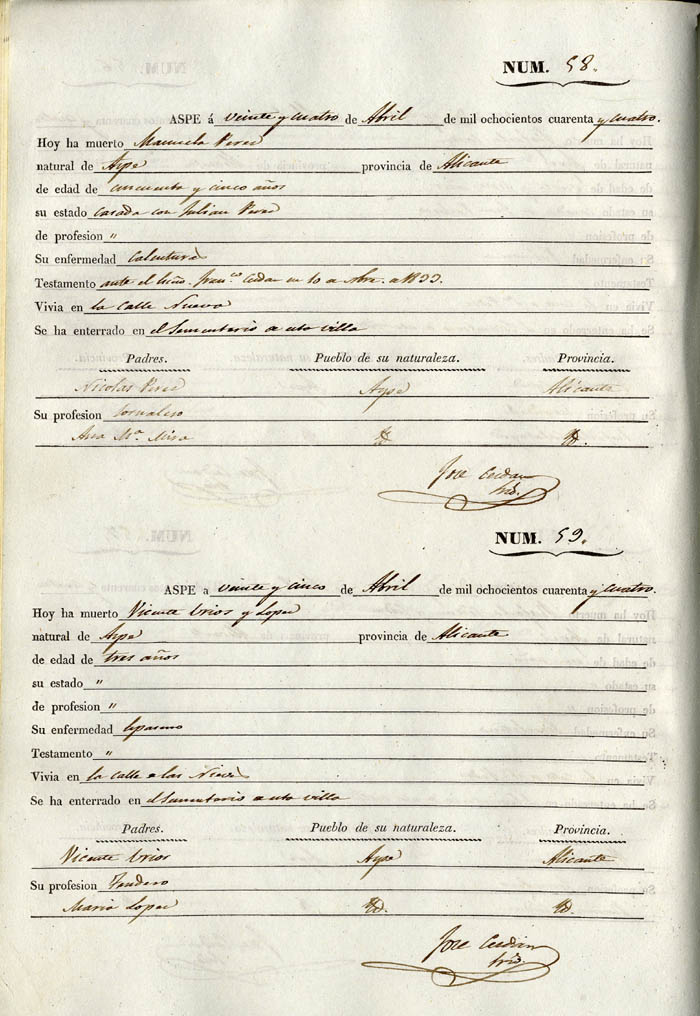 NUM. 58.
ASPE á veinte y cuatro de Abril de mil ochocientos cuarenta y cuatro.
Hoy ha muerto Manuela Perez
natural de Aspe provincia de Alicante
de edad de cincuenta y cinco años
su estado casada con Julian Perez
de profesion "
Su enfermedad Calentura
Testamento ante el en 10 1833.
Vivia en la calle Nueva
Se ha enterrado en el Sementerio villa
Padres. Pueblo de su naturaleza. Provincia.
Nicolas Perez Aspe Alicante
Su profesion Jornalero
Ana Mª. Mira Yd. Yd.
Jose Cerdan
NUM. 59.
ASPE a veinte y cinco de Abril de mil ochocientos cuarenta y cuatro.
Hoy ha muerto Vicente Urios y Lopez
natural de Aspe provincia de Alicante
de edad de tres años
su estado "
de profesion "
Su enfermedad
Testamento "
Vivia en la calle las Nieves
Se ha enterrado en el Sementerio villa
Padres. Pueblo de su naturaleza. Provincia.
Vicente Urios Aspe Alicante
Su profesion Tendero
Maria Lopez Yd. Yd.
Jose Cerdan